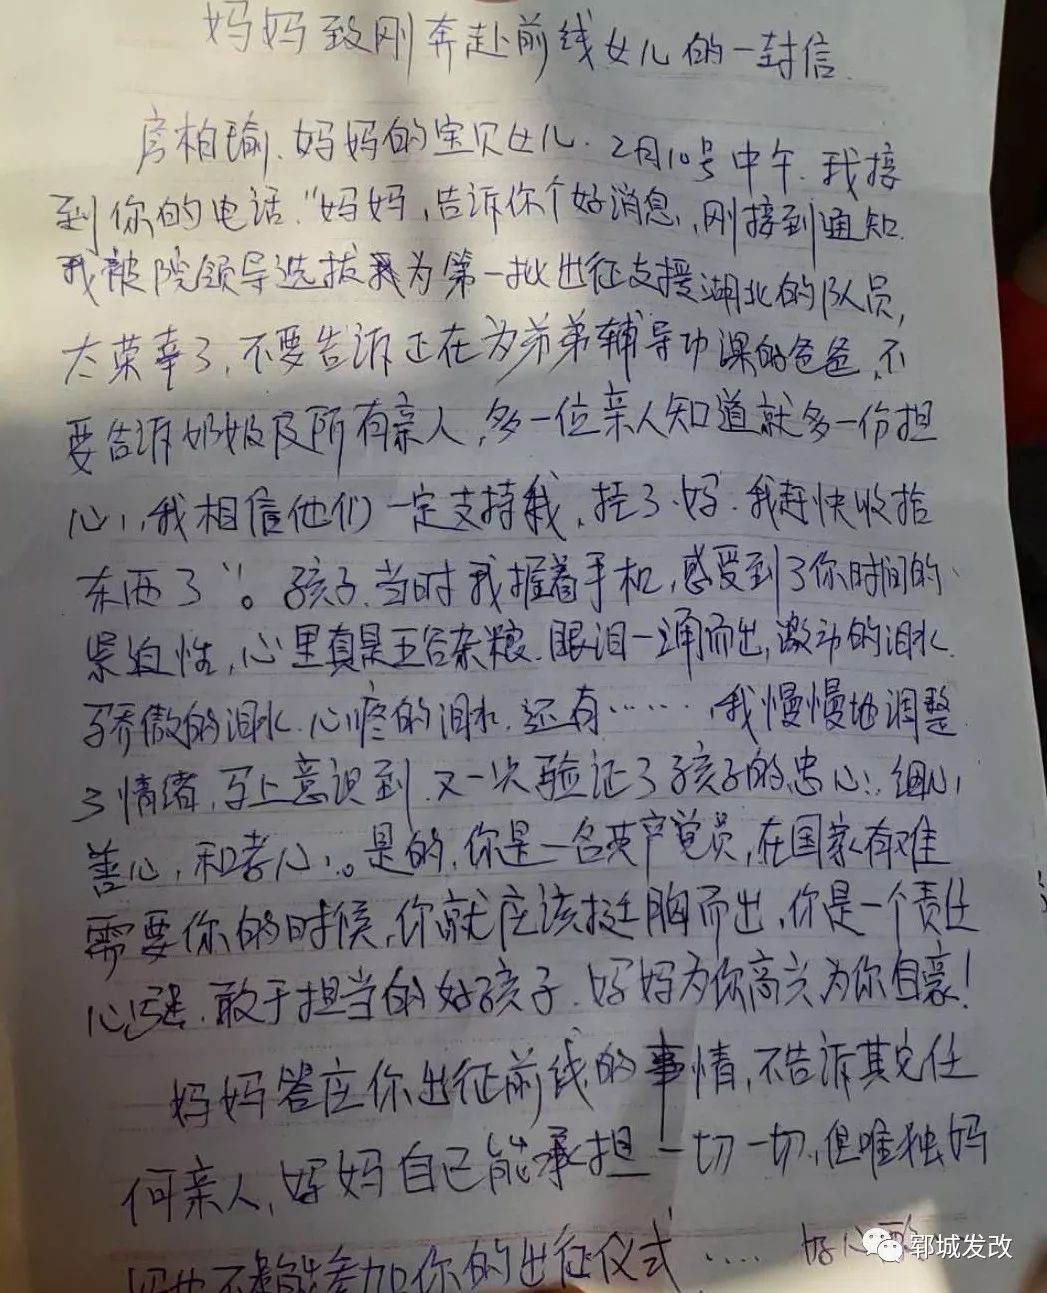 妈妈致刚奔赴前线女儿的一封信
房柏瑜、妈妈的宝贝女儿、2月10号中午、我接
到你的电话、"妈妈,告诉你个好消息,刚接到通知
我被院领导选拔我为第一批出征支援湖北的队员,
太荣幸了,不要告诉正在为弟弟辅导功课的爸爸,不
要告诉奶奶及所有亲人,多一位亲人知道就多一份担
心,我相信他们一定支持我,挂了、妈、我赶快收拾
东西了"。孩子、当时我握着手机,感受到了你时间的
紧迫性,心里真是五谷杂粮、眼泪一涌而出,激动的泪水、
骄傲的泪水、心疼的泪水、还有……,我慢慢地调整
了情绪,马上意识到又一次验证了孩子的忠心、细心、
善心,和孝心。是的,你是一名共产党员,在国家有难
需要你的时候,你就应该挺胸而出,你是一个责任
心强、敢于担当的好孩子、妈妈为你高兴为你自豪!
妈妈答应你出征前线的事情,不告诉其它任
何亲人,妈妈自己能承担一切一切,但唯独妈
不能参加你的出征仪式……
郓城发改